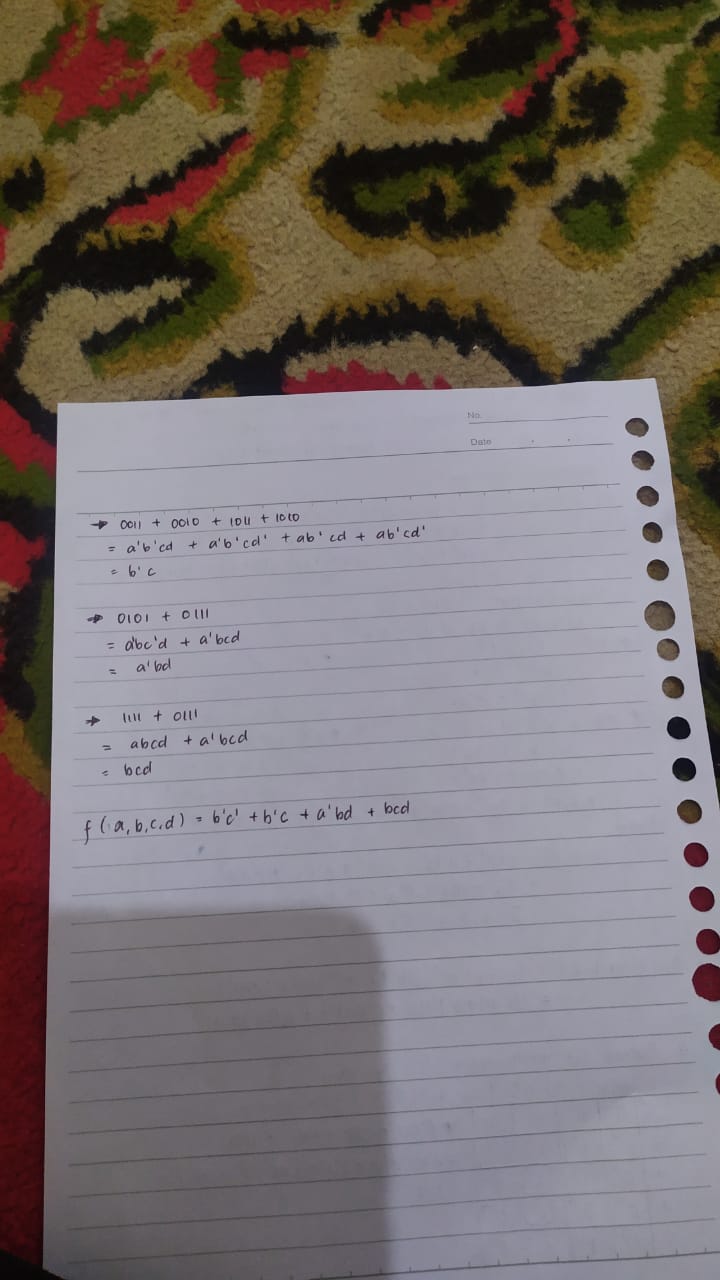 No.
Date
→ 0011 + 0010 + 1011 + 1010
= a'b'cd + a'b'cd' + ab'cd + ab'cd'
= b'c
→ 0101 + 0111
= a'bc'd + a'bcd
= a'bd
→ 1111 + 0111
= abcd + a'bcd
= bcd
f (a,b,c,d) = b'c' + b'c + a'bd + bcd